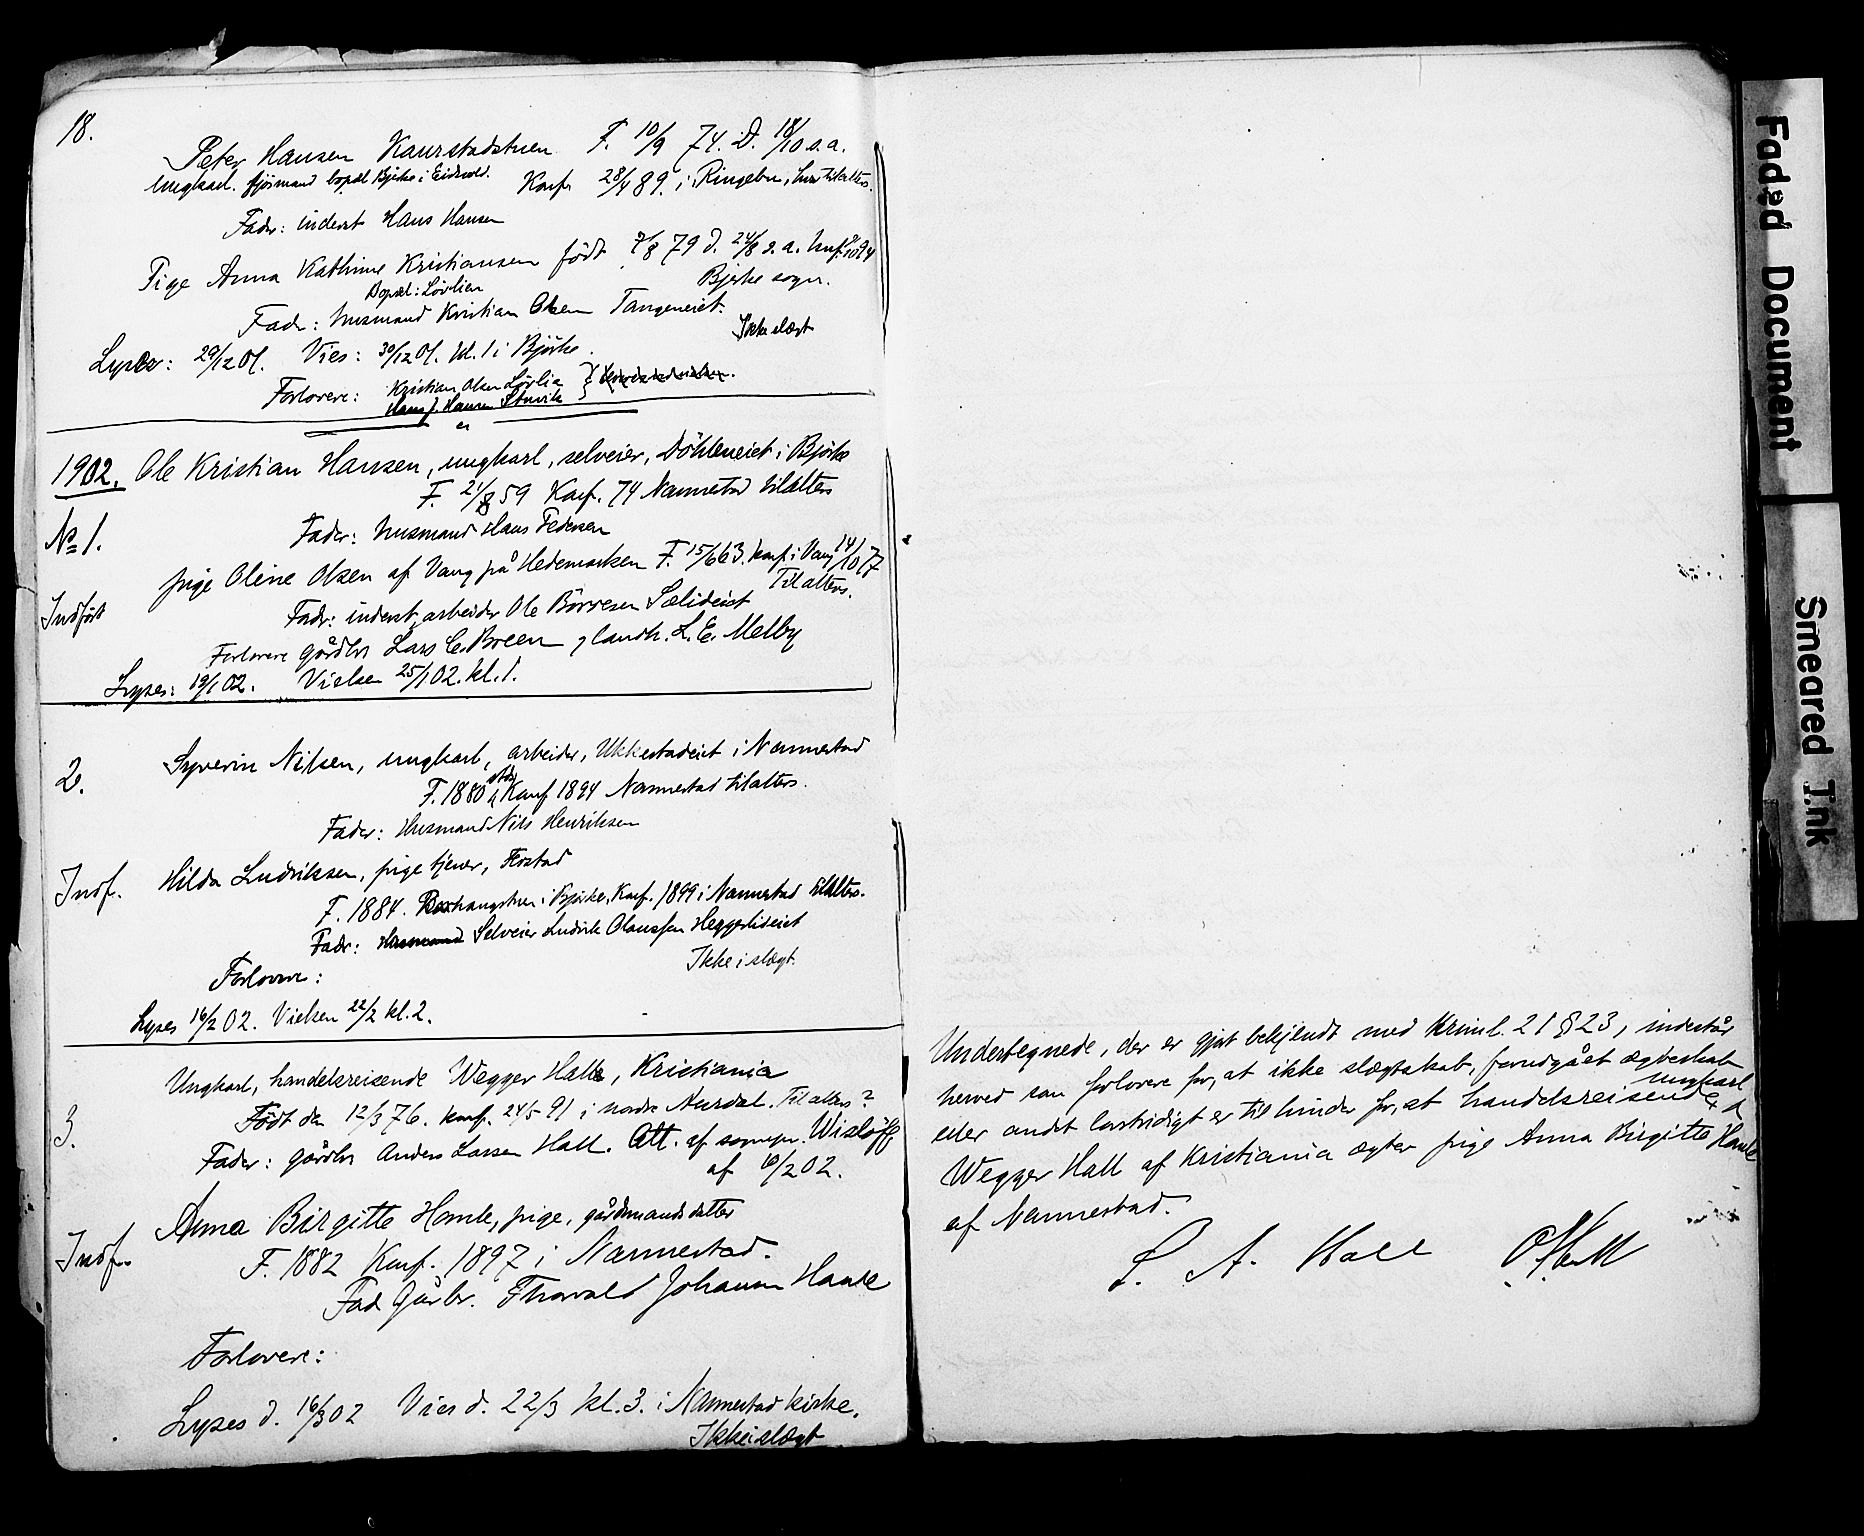 18.
Peter Hansen Kaurstadstuen F. 10/9 74. D. 18/10 s.a.
Ungkarl. fjøsmand bopæl Bjerke i Eidsvold. Konf. 28/4 89. i Ringebu, tilalters.
Fader: inderst Hans Hansen
Pige Anna Kathrine Kristiansen født 2/8 79 d. 24/8 s.a. 
Bopæl: Løvlien Bjerke sogn.
Fader: husmand Kristian Olsen Tangeneiet.
Ikke slægt
Lyser: 29/12 01. Vies: 30/12 01. kl. 1 i Bjerke.
Forlovere: Kristian Olsen Løvlie
Hansen
1902. Ole Kristian Hansen, ungkarl, selveier, Döhleneiet i Bjerke
F. 21/8 59 Konf. 74 Nannestad tilalters
No 1.
Fader: husmand Hans Pedersen
pige Oline Olsen af Vang på Hedemarken F. 15/6 63. konf. i Vang 14/10 77
Tilalters.
Indført
Fader: inderst, arbeider Ole Börresen Sælideiet
Forlovere gårdbr Lars C. Breen, landh. L. E. Melby
Lyses: 19/1 02. Vielse 25/1 02. kl. 1.
2.
Syverin Nilsen, ungkarl, arbeider, Ukkestadeiet i Nannestad
F. 1880 Konf 1894 Nannestad tilalters.
Fader: Husmand Nils Henriksen
Indf.
Hilda Ludviksen, pige tjener, Flostad
F. 1884. i Bjerke, Konf. 1899 i Nannestad tilalters.
Fader: Husmand Selveier Ludvik Olaussen Heggerlideiet
Ikke i slægt.
Forlovere:
Lyses 16/2 02. Vielsen 22/2 kl. 2.
3.
Ungkarl, handelsreisende Wegger Hall, Kristiania
Født den 12/3 76. konf. 24/5 91 i nordre Aurdal. Tilalters?
Fader: gårdbr Anders Larsen Hall. Att. af sognepr. Wisløff
af 6/2 02.
Anna Birgitte Homle, pige, gårdmandsdatter
F. 1882 Konf. 1897 i Nannestad.
Indf.
Fad. Gårbr. Thorvald Johannes
Forlovere:
Lyses d. 16/3 02 Vies d. 22/3 kl. 3. i Nannestad kirke.
Ikke i slægt
Undertegnede, der er gjort bekjendt med Kriml. 21 § 23, indestår
herved som forlovere for, at ikke slægtskab, forudgået ægteskab
eller andet lovstridigt er til hinder for, at ungkarl handelsreisende
Wegger Hall af Kristiania ægter pige Anna Birgitte
af Nannestad.
L. A. Hall O. Hall
Faded Document
Smeared Ink